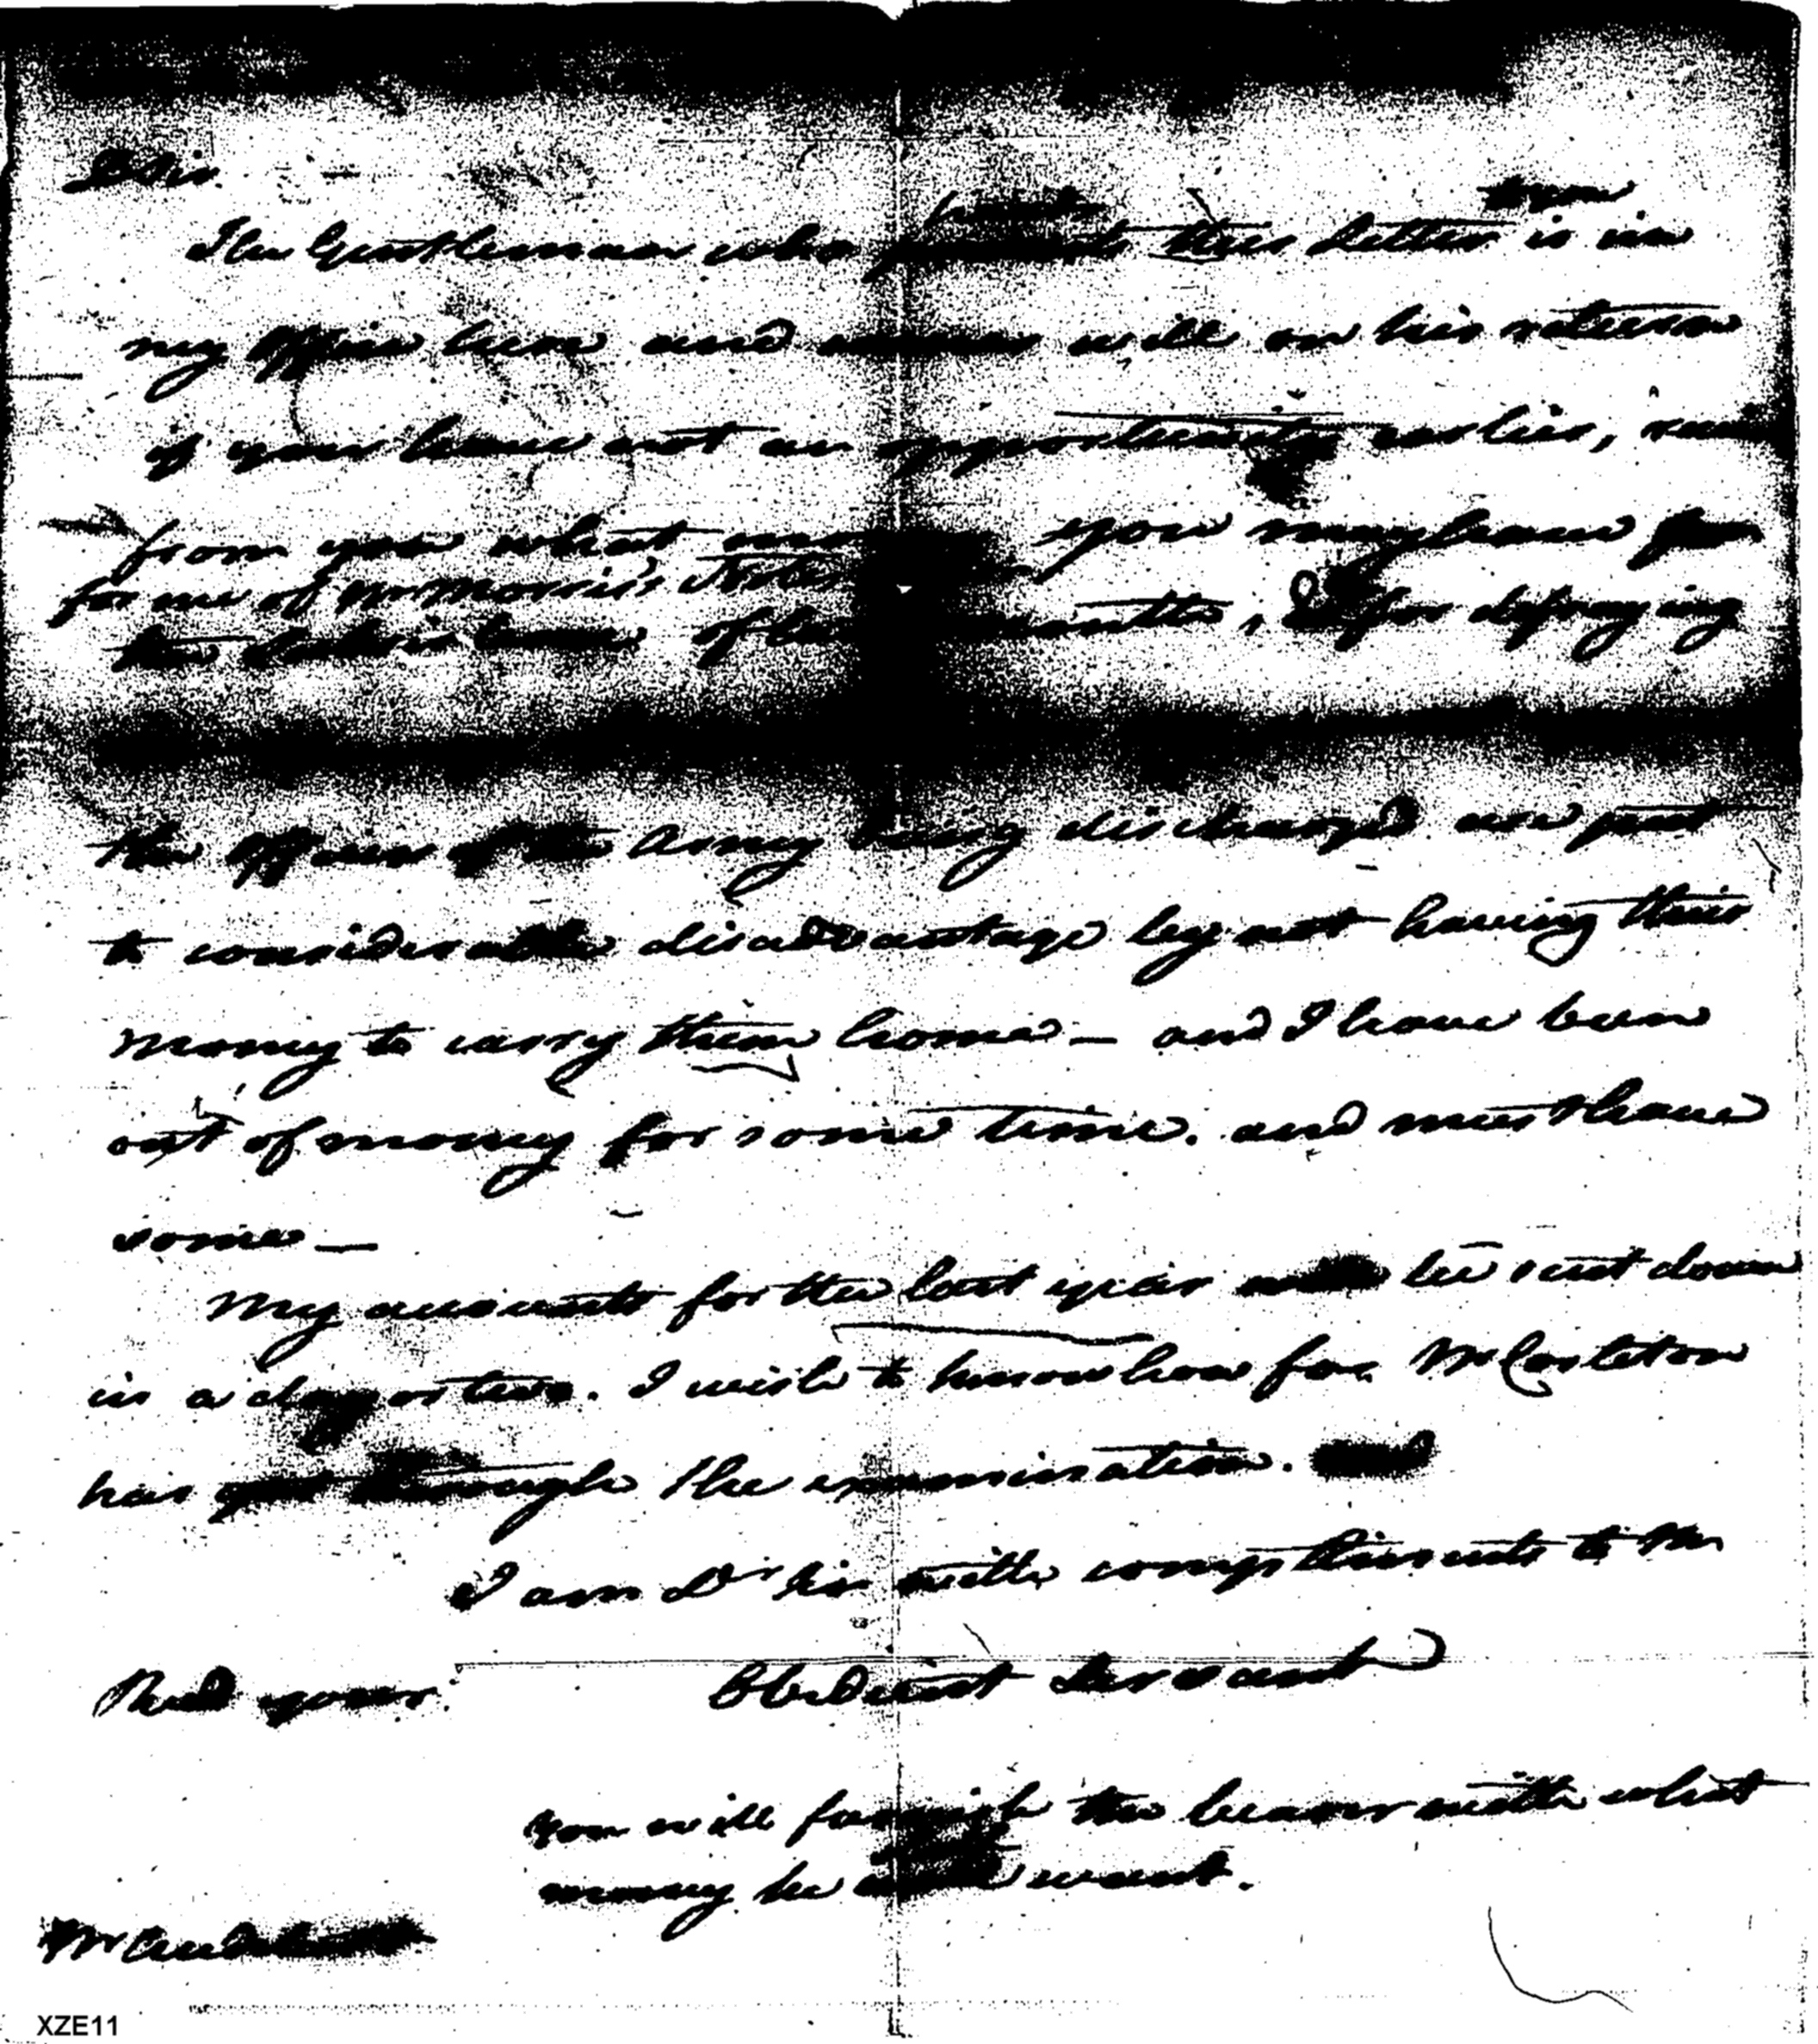 Sir
The Gentleman who presents this Letter is in
my office here and will on his return
if you have not an opportunity earlier,
from you what you may have
for me of Mr Morris's Notes
the of months, for defraying
the officers of the Army being discharged are put
to considerable disadvantage by not having their
money to carry them home — and I have been
out of money for some time. and must have
some —
My accounts for the last year will be sent down
in a day or two. I wish to know how far Mr Carleton
has got through the examination.
I am Dr Sir with compliments to Mr
Read your Obedient Servant
You will furnish the bearer with what
money he want.
Mr
XZE11